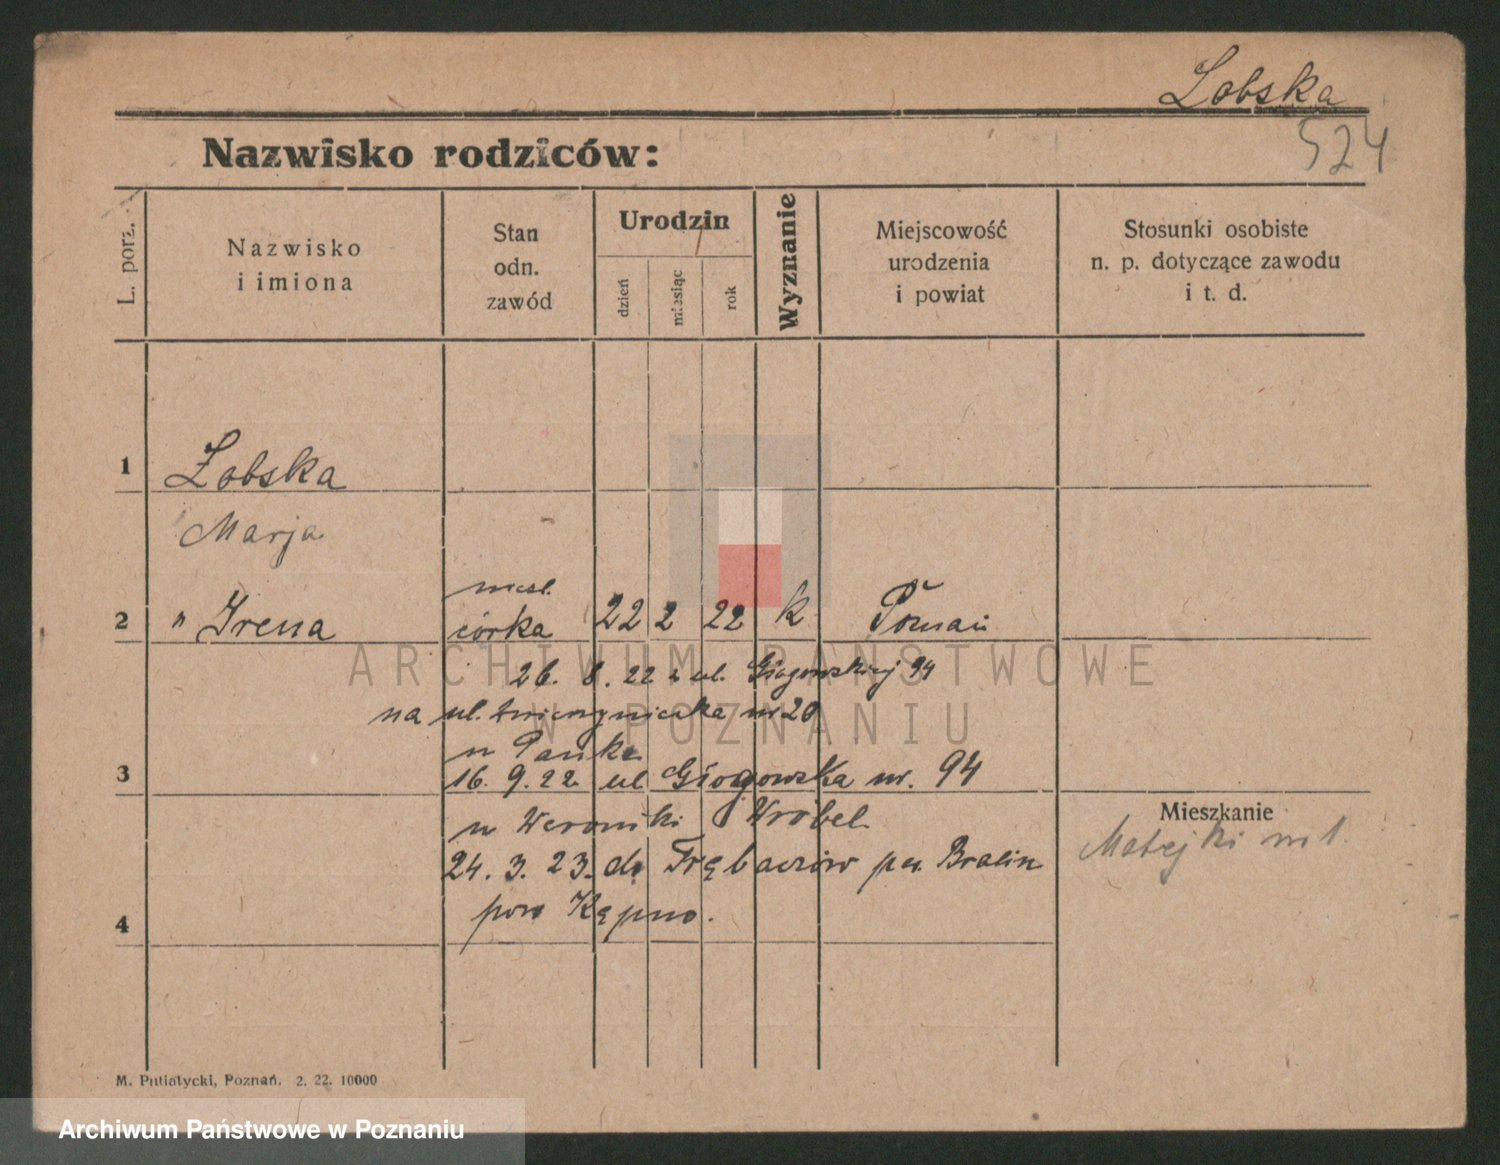 Łobska
524
Nazwisko rodziców:
L. porz.
Nazwisko
i imiona
Stan
odn.
zawód
Urodzin
dzień
miesiąc
rok
Wyznanie
Miejscowość
urodzenia
i powiat
Stosunki osobiste
n. p. dotyczące zawodu
i t. d.
1
Łobska
Marja
2
" Irena
córka
22 2 22 k Poznań
26. 8. 22 z ul. Głogowskiej 94
na ul. nr 20
3
16. 9. 22 ul Głogowska nr. 94
u Weroniki Wróbel
24. 3. 23. do Trębaczów pw. Bralin
pow Kępno.
4
Mieszkanie
Matejki nr 1.
M. Putiatycki, Poznań. 2. 22. 10000
ARCHIWUM PAŃSTWOWE
W POZNANIU
Archiwum Państwowe w Poznaniu